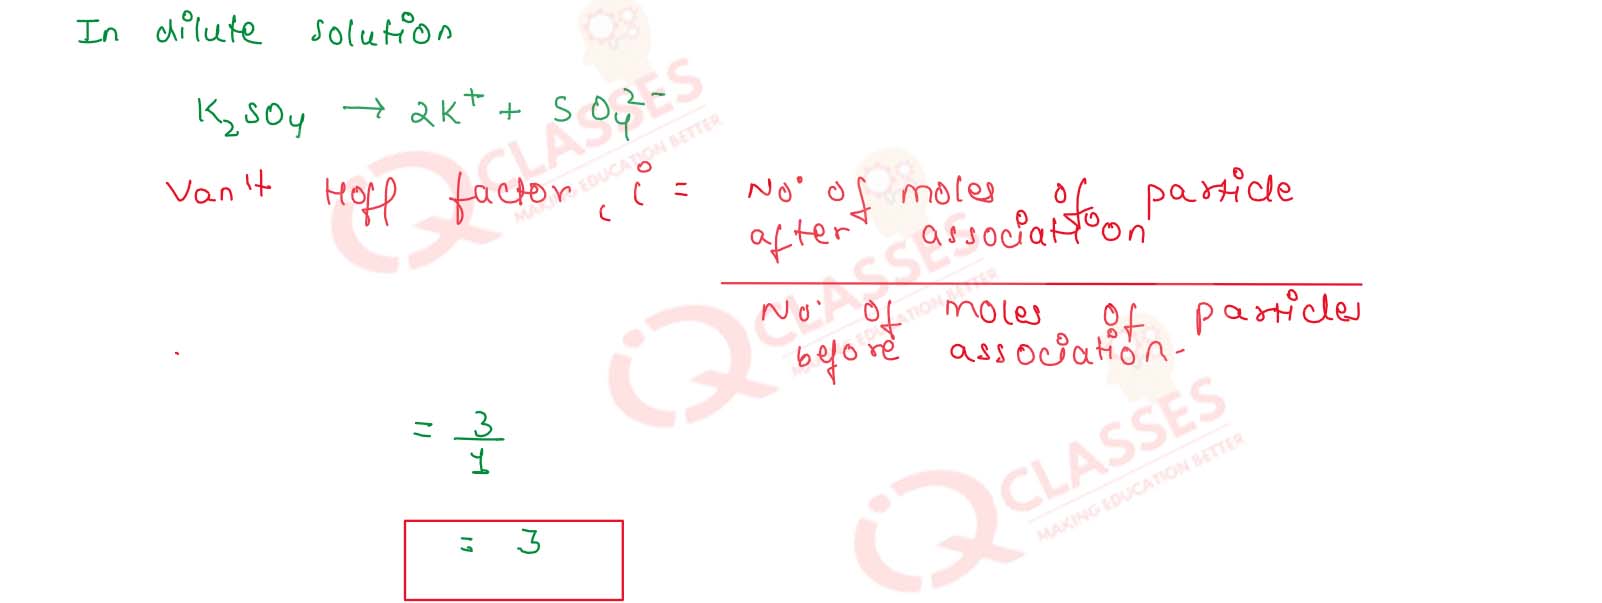 In dilute solution
K₂SO₄ → 2K⁺ + SO₄²⁻
Van't Hoff factor, i = No. of moles of particle
after association
No. of moles of particles
before association.
= 3
1
= 3
CLASSES
MAKING EDUCATION BETTER
CLASSES
MAKING EDUCATION BETTER
CLASSES
MAKING EDUCATION BETTER